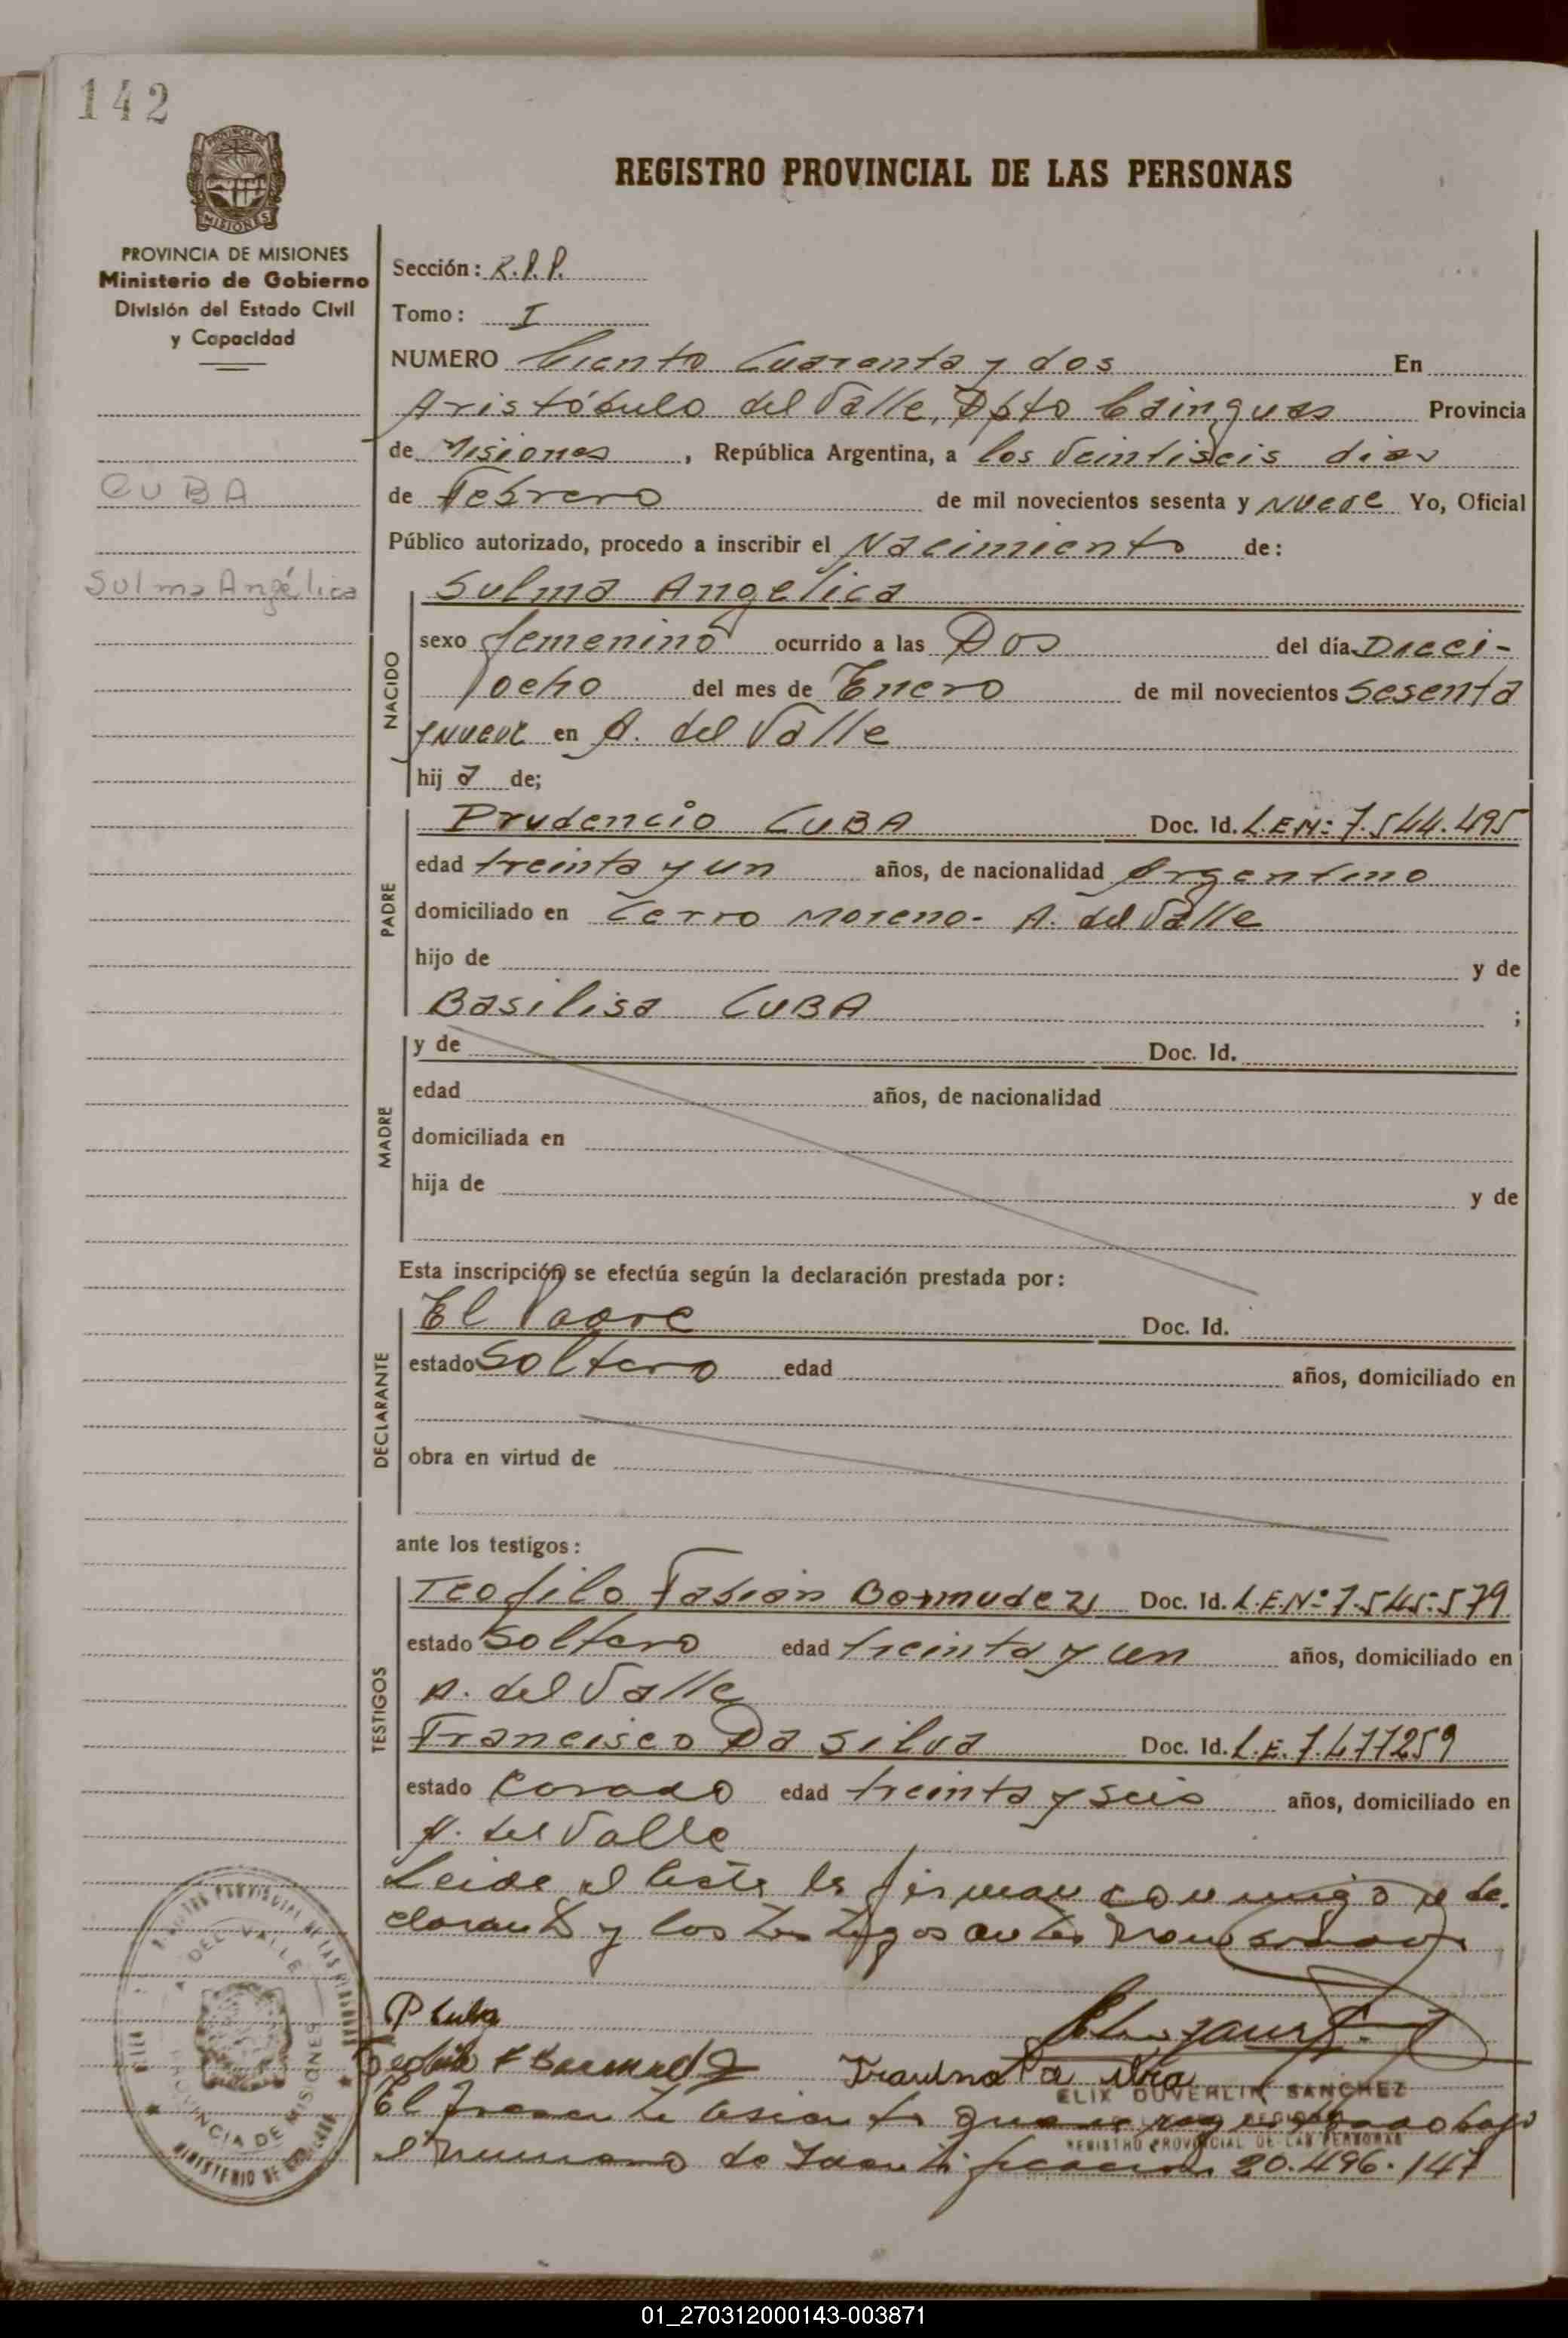 142
PROVINCIA DE MISIONES
PROVINCIA DE MISIONES
Ministerio de Gobierno
División del Estado Civil
y Capacidad
CUBA
Sulma Angélica
REGISTRO PROVINCIAL DE LAS PERSONAS
Sección: R.P.P.
Tomo: I
NUMERO Ciento Cuarenta y dos En
Aristóbulo del Valle, Dpto Cainguas Provincia
de Misiones, República Argentina, a los Veintiseis dias
de Febrero de mil novecientos sesenta y nueve Yo, Oficial
Público autorizado, procedo a inscribir el Nacimiento de:
NACIDO
Sulma Angélica
sexo femenino ocurrido a las Dos del día Dieci-
ocho del mes de Enero de mil novecientos Sesenta
y nueve en A. del Valle
hij a de;
PADRE
Prudencio CUBA Doc. Id. L.E.Nº: 7.544.495
edad treinta y un años, de nacionalidad Argentino
domiciliado en Cerro Moreno- A. del Valle
hijo de y de
Basilisa CUBA ;
MADRE
y de Doc. Id.
edad años, de nacionalidad
domiciliada en
hija de y de
Esta inscripción se efectúa según la declaración prestada por:
DECLARANTE
El Padre Doc. Id.
estado Soltero edad años, domiciliado en
obra en virtud de
ante los testigos:
TESTIGOS
Teofilo Fabián Bermudez Doc. Id. L.E.Nº 7.545.579
estado Soltero edad treinta y un años, domiciliado en
A. del Valle
Francisco Da Silva Doc. Id. L.E. 7.477259
estado Casado edad treinta y seis años, domiciliado en
A. del Valle
Leida el Acta la firman conmigo el de-
clarante y los testigos antes mencionados
P Cuba
Teofilo F Bermudez
Da Silva
ELIX DUVERLIN SANCHEZ
REGISTRO PROVINCIAL DE LAS PERSONAS
El presente asiento queda registrado bajo
el numero de Identificacion 20.496.147
REGISTRO PROVINCIAL DE LAS PERSONAS
A. DEL VALLE
PROVINCIA DE MISIONES
MINISTERIO DE GOBIERNO
01_270312000143-003871